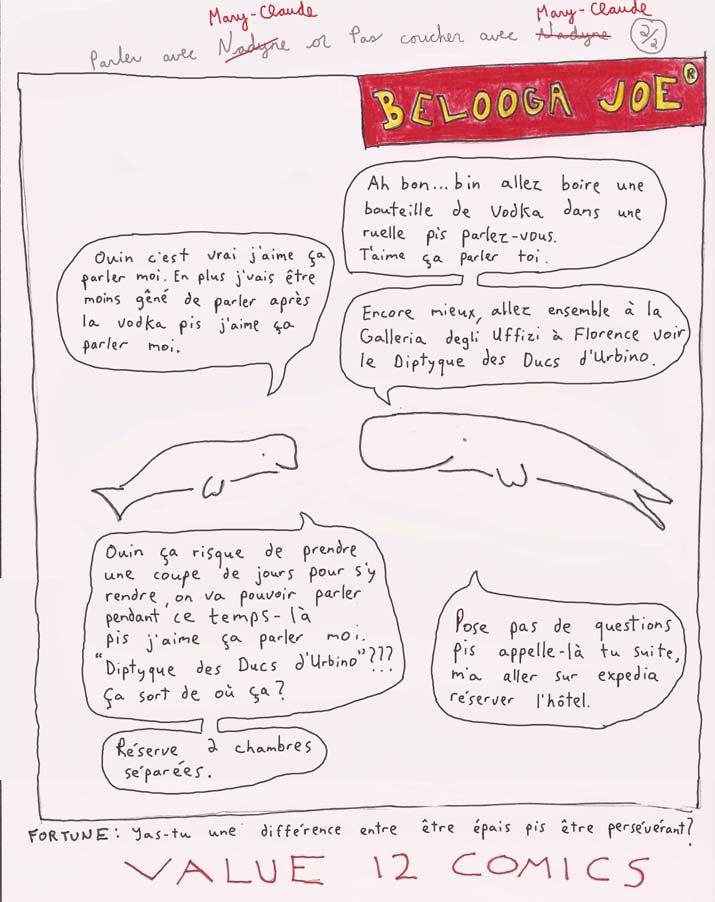 Mary-Claude Mary-Claude
Parler avec Nadyne or Pas coucher avec Nadyne 2/2
BELOOGA JOE ®
Ah bon... bin allez boire une
bouteille de vodka dans une
ruelle pis parlez-vous.
T'aime ça parler toi.
Ouin c'est vrai j'aime ça
parler moi. En plus j'vais être
moins gêné de parler après
la vodka pis j'aime ça
parler moi.
Encore mieux, allez ensemble à la
Galleria degli Uffizi à Florence voir
le Diptyque des Ducs d'Urbino.
Ouin ça risque de prendre
une coupe de jours pour s'y
rendre, on va pouvoir parler
pendant ce temps-là
pis j'aime ça parler moi.
"Diptyque des Ducs d'Urbino"???
Ça sort de où ça?
Réserve 2 chambres
séparées.
Pose pas de questions
pis appelle-là tu suite,
m'a aller sur expedia
réserver l'hôtel.
FORTUNE: Yas-tu une différence entre être épais pis être persévérant?
VALUE 12 COMICS